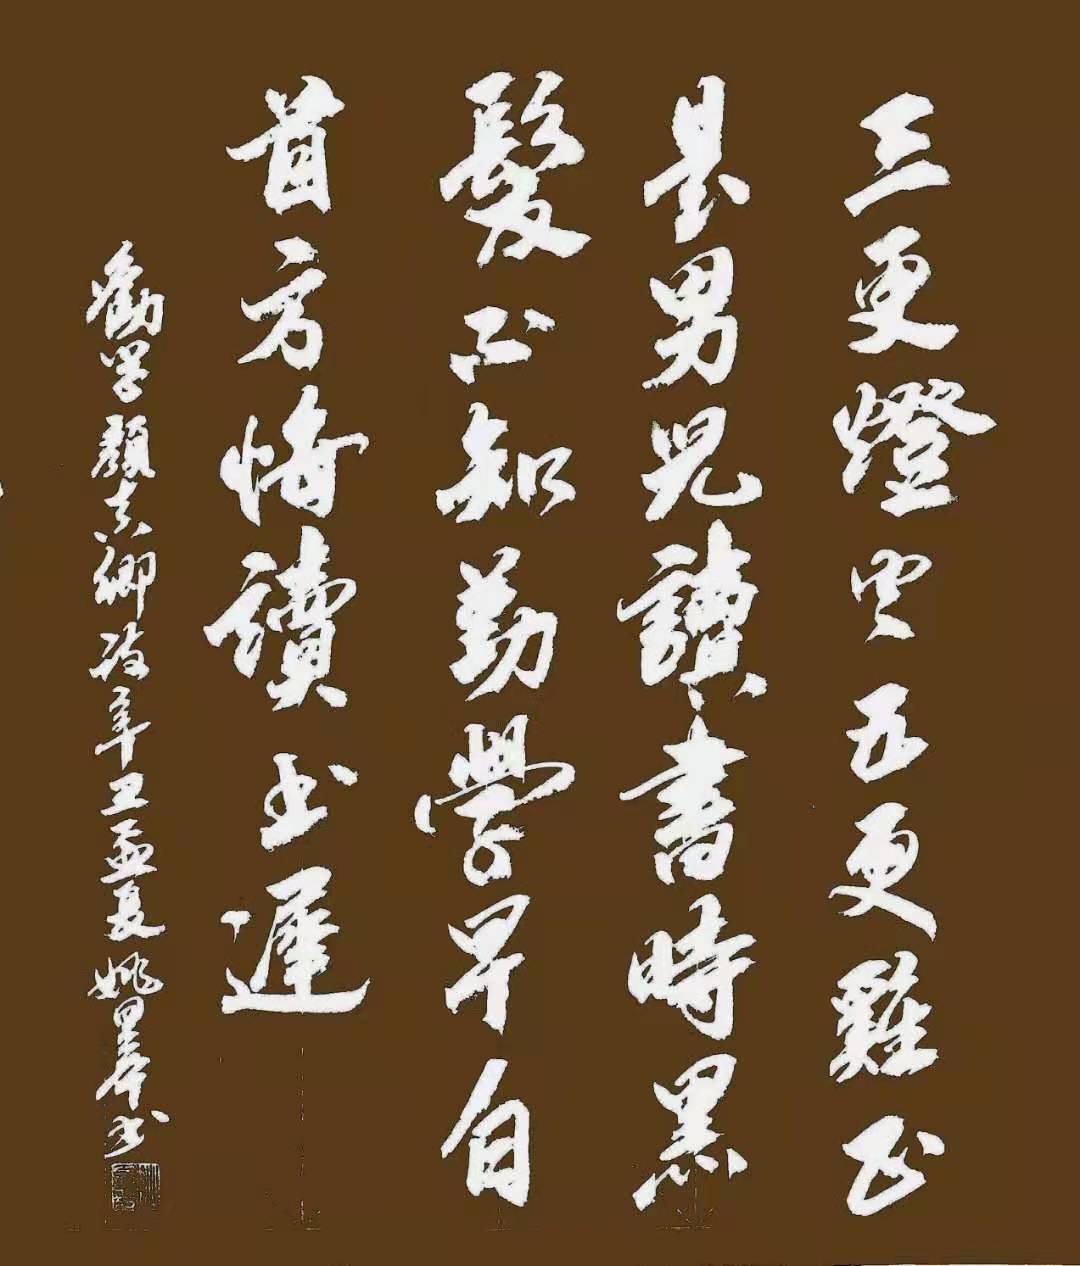 三更燈火五更雞正
是男兒讀書時黑
髮不知勤學早白
首方悔讀书遲
勸学顏真卿诗辛丑孟夏姚书